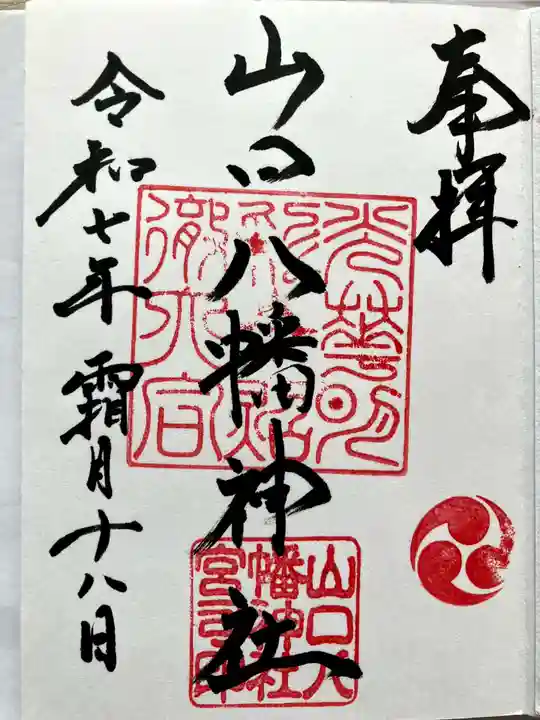 奉拝
山口八幡神社
令和七年霜月十八日
山口八
幡神社
宮司印